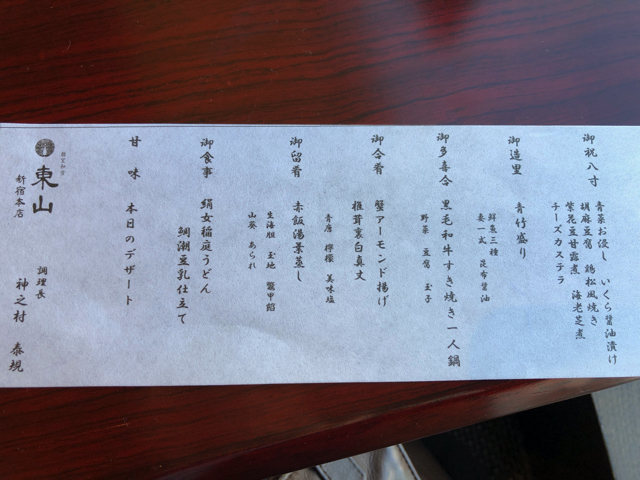 御祝八寸
青菜お浸し いくら醤油漬け
胡麻豆腐 鶏松風焼き
紫花豆甘露煮 海老芝煮
チーズカステラ
御造里 青竹盛り
鮮魚三種
妻一式 昆布醤油
御多喜合 黒毛和牛すき焼き一人鍋
野菜 豆腐 玉子
御合肴 蟹アーモンド揚げ
椎茸裏白真丈
青唐 檸檬 美味塩
御留肴 赤飯湯葉蒸し
生海胆 玉地 鼈甲餡
山葵 あられ
御食事 絹女稲庭うどん
鯛潮豆乳仕立て
甘味 本日のデザート
東山
新宿本店
調理長
神之村 泰規